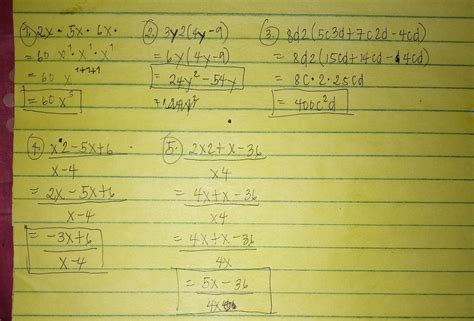 1. 2x · 5x · 6x ·
= 60 x¹ · x¹ · x¹
= 60 x 1+1+1
= 60 x³
2. 3y2(4y-9)
= 6y(4y-9)
= 24y² - 54y
3. 8d2(5c3d+7c2d-4cd)
= 8d2(15cd+14cd-4cd)
= 8c·2·25cd
= 400c²d
4. x·2-5x+6
x-4
= 2x-5x+6
x-4
= -3x+6
x-4
5. 2x2+x-36
x4
= 4x+x-36
x4
= 4x+x-36
4x
= 5x-36
4x